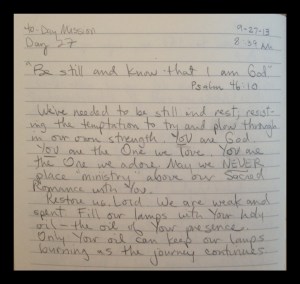 40-Day Mission 9-27-13
Day 27 8:37 AM
"Be still and know that I am God"
Psalm 46:10
We've needed to be still and rest, resist-
ing the temptation to try and plow through
in our own strength. YOU are God.
YOU are the One we love. YOU are
the One we adore. May we NEVER
place "ministry" above our Sacred
Romance with You.
Restore us, Lord. We are weak and
spent. Fill our lamps with Your holy
oil – the oil of Your presence.
Only Your oil can keep our lamps
burning as the journey continues